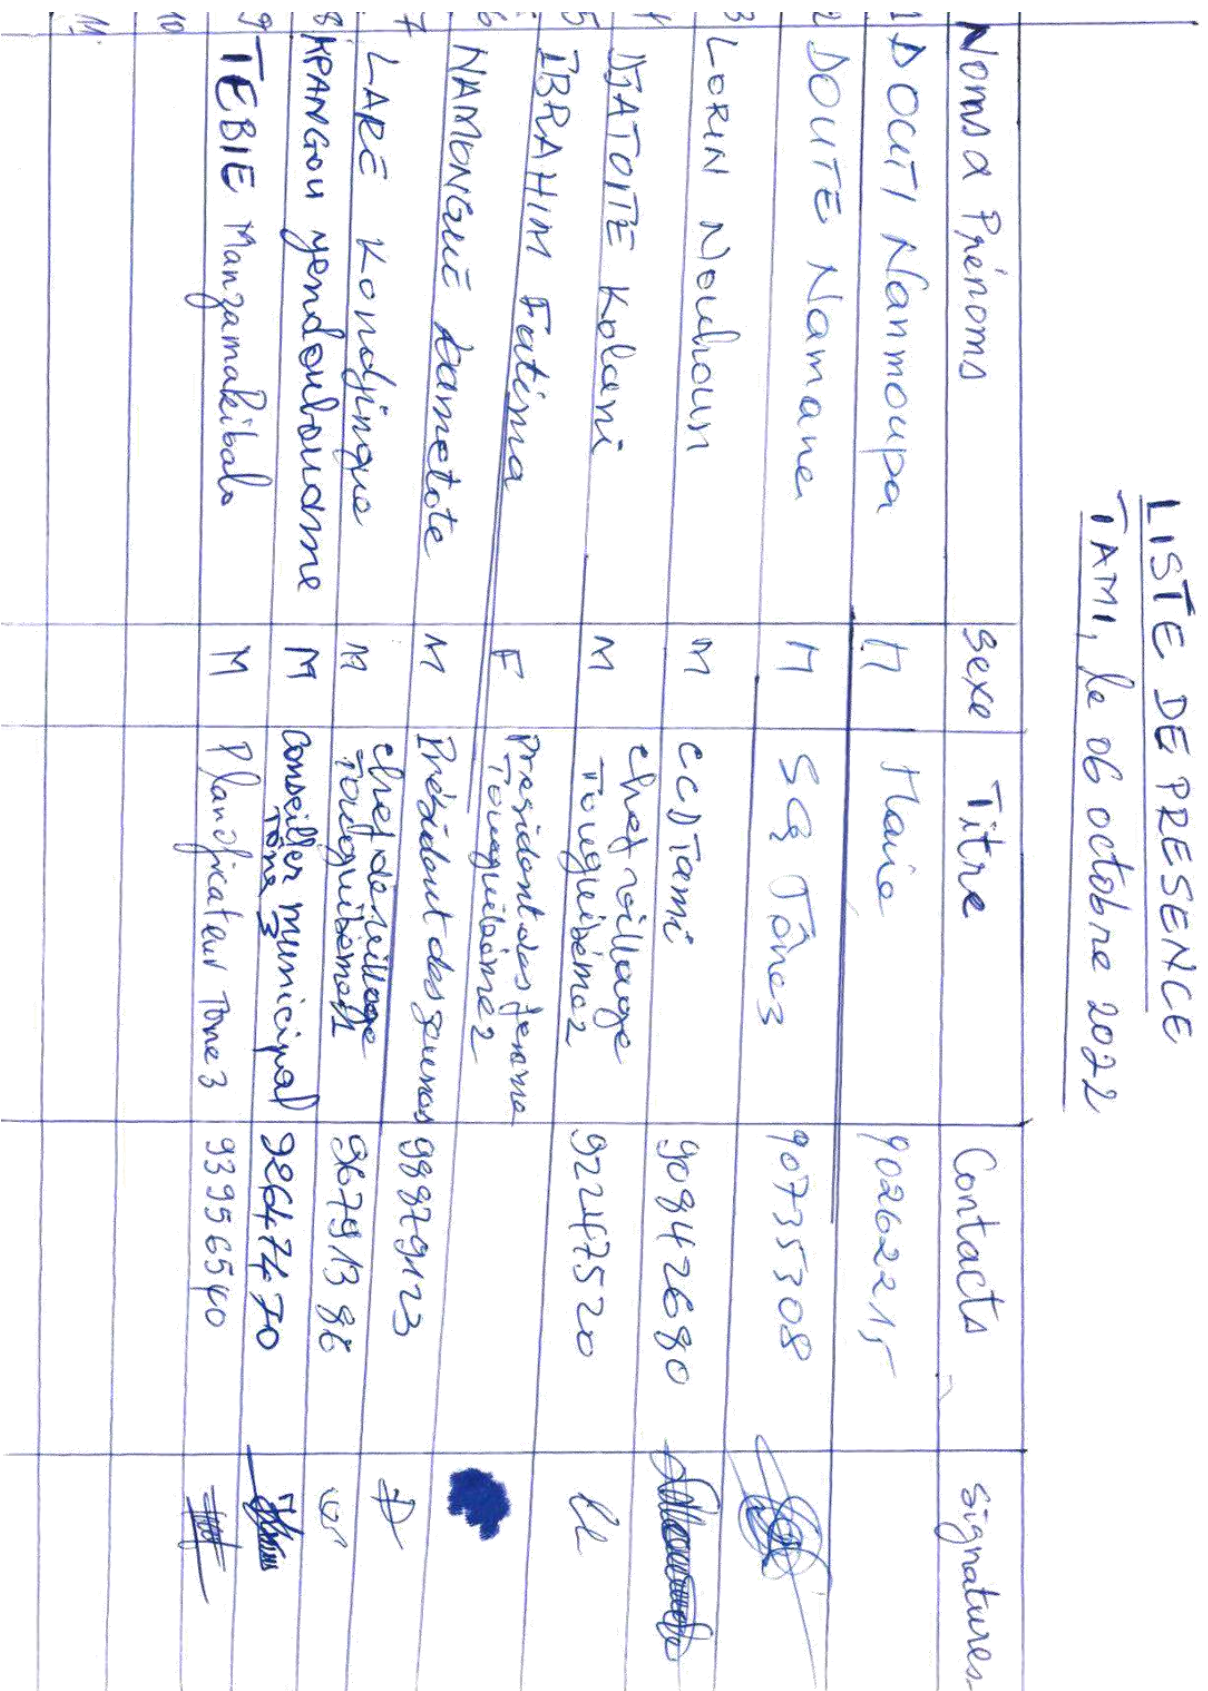 LISTE DE PRESENCE
TAMI, le 06 octobre 2022
Noms & Prénoms Sexe Titre Contacts Signatures
1 DOUTI Nanmoupa M Maire 90262215
2 DOUTE Namane M SG Tône3 90735308
3 LORIN Nouhoun M CCD Tami 90842680
4 DJATOITE Kolani M chef village
Touguibéme2 92247520
5 IBRAHIM Fatima F Presidont des femme
Touguibéme2
6 NAMONGUE Lametote M Président des Jeunes 98879123
7 LARE Kondjingue M chef de village
Touguibéme1 96791386
8 KPANGOU yendoubouame M Conseiller municipal
Tône 3 92647470
9 TEBIE Manzamakibalo M Planificateur Tone 3 93956540
10
11